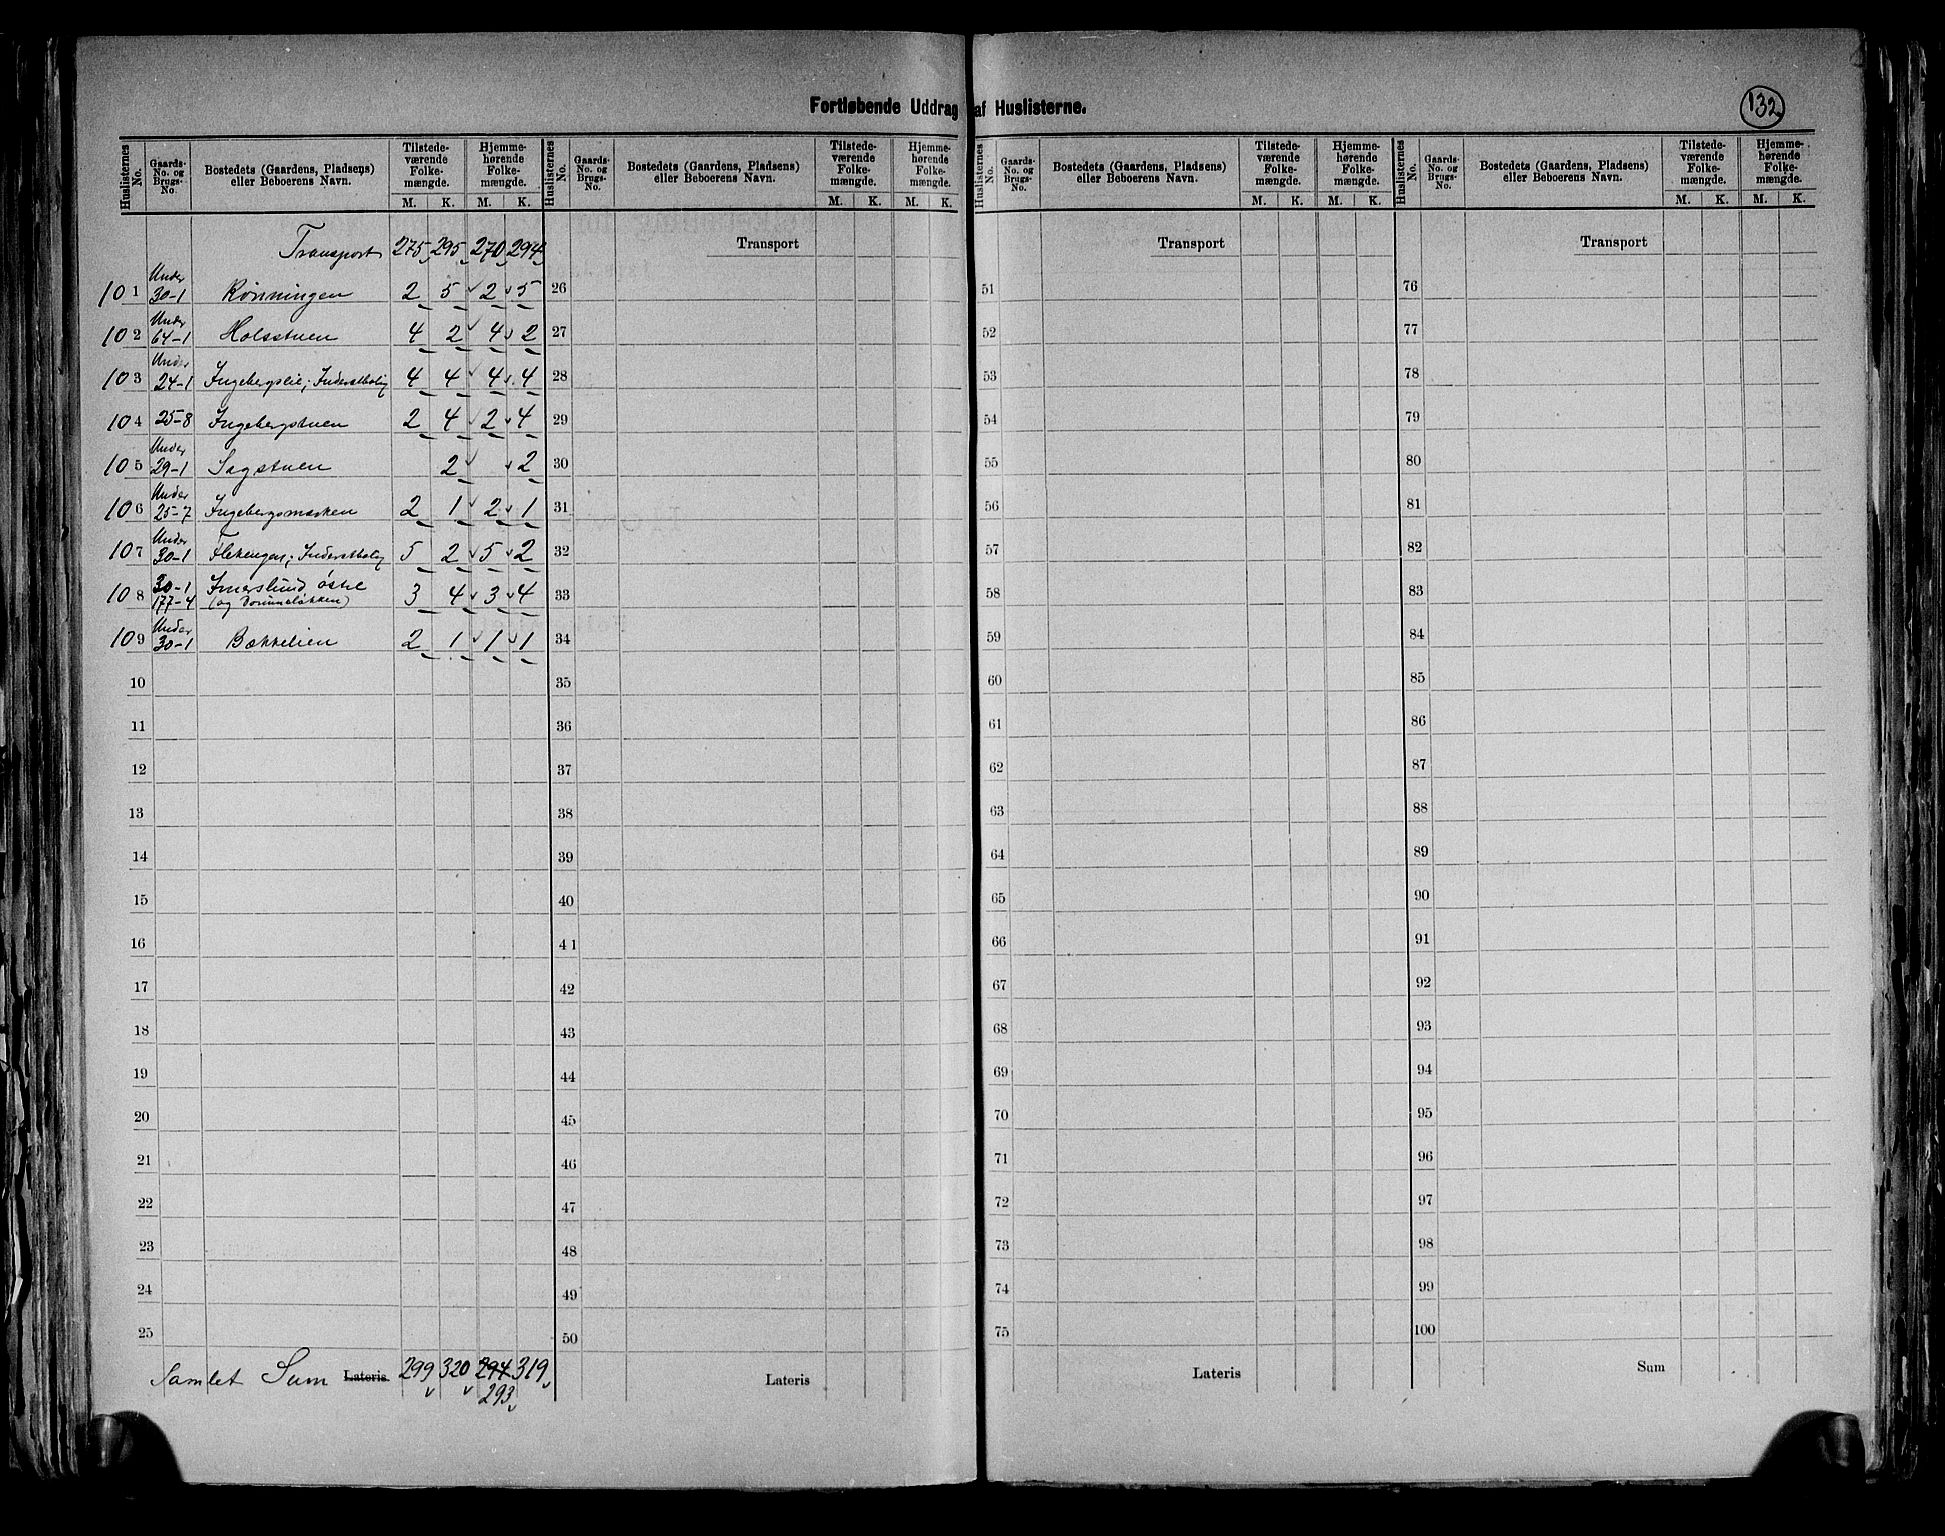 Fortløbende Uddrag af Huslisterne.
132
Huslisternes No. | Gaards-No. og Brugs-No. | Bostedets (Gaardens, Pladsens) eller Beboerens Navn. | Tilstedeværende Folkemængde. M. K. | Hjemmehørende Folkemængde. M. K.
Transport 275 295 270 294
10 1 Under 30-1 Rønningen 2 5 2 5
10 2 Under 64-1 Holsstuen 4 2 4 2
10 3 Under 24-1 Ingebergslie; Inderstbolig 4 4 4 4
10 4 25-8 Ingebergstuen 2 4 2 4
10 5 Under 29-1 Sagstuen 2 2
10 6 Under 25-7 Ingebergsmarken 2 1 2 1
10 7 Under 30-1 Flekengen; Inderstbolig 5 2 5 2
10 8 30-1 177-4 Imerslund østre 3 4 3 4
10 9 Under 30-1 Bækkelien 2 1 1 1
10
11
12
13
14
15
16
17
18
19
20
21
22
23
24
25
Samlet Sum Lateris. 299 320 294 319
293
Huslisternes No. | Gaards-No. og Brugs-No. | Bostedets (Gaardens, Pladsens) eller Beboerens Navn. | Tilstedeværende Folkemængde. M. K. | Hjemmehørende Folkemængde. M. K.
Transport
26
27
28
29
30
31
32
33
34
35
36
37
38
39
40
41
42
43
44
45
46
47
48
49
50
Lateris
Huslisternes No. | Gaards-No. og Brugs-No. | Bostedets (Gaardens, Pladsens) eller Beboerens Navn. | Tilstedeværende Folkemængde. M. K. | Hjemmehørende Folkemængde. M. K.
Transport
51
52
53
54
55
56
57
58
59
60
61
62
63
64
65
66
67
68
69
70
71
72
73
74
75
Lateris
Huslisternes No. | Gaards-No. og Brugs-No. | Bostedets (Gaardens, Pladsens) eller Beboerens Navn. | Tilstedeværende Folkemængde. M. K. | Hjemmehørende Folkemængde. M. K.
Transport
76
77
78
79
80
81
82
83
84
85
86
87
88
89
90
91
92
93
94
95
96
97
98
99
100
Sum